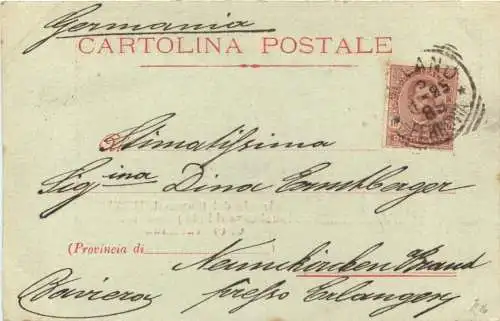 Germania
CARTOLINA POSTALE
Stimatissima
Sig.ina Dina Ernstberger
(Provincia di
Neunkirchen Brand
Baviera presso Erlangen